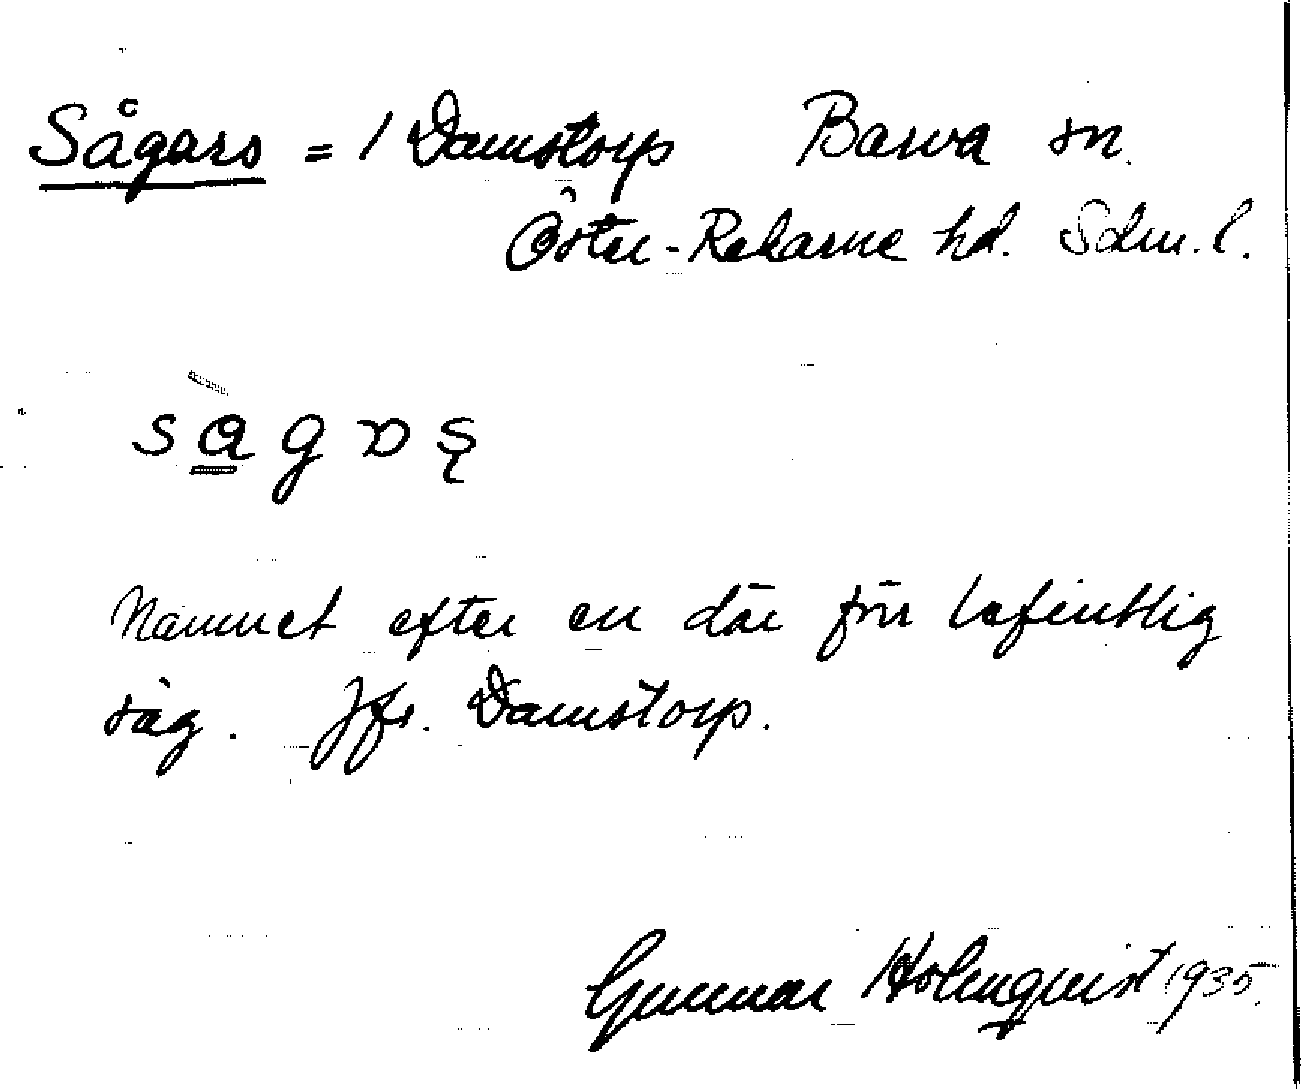 Sågars = / Damstorp Barva sn.
Öster-Rekarne hd. Sdm. l.
Namnet efter en där förr befintlig
såg. Jfr. Damstorp.
Gunnar Holmquist 1935.